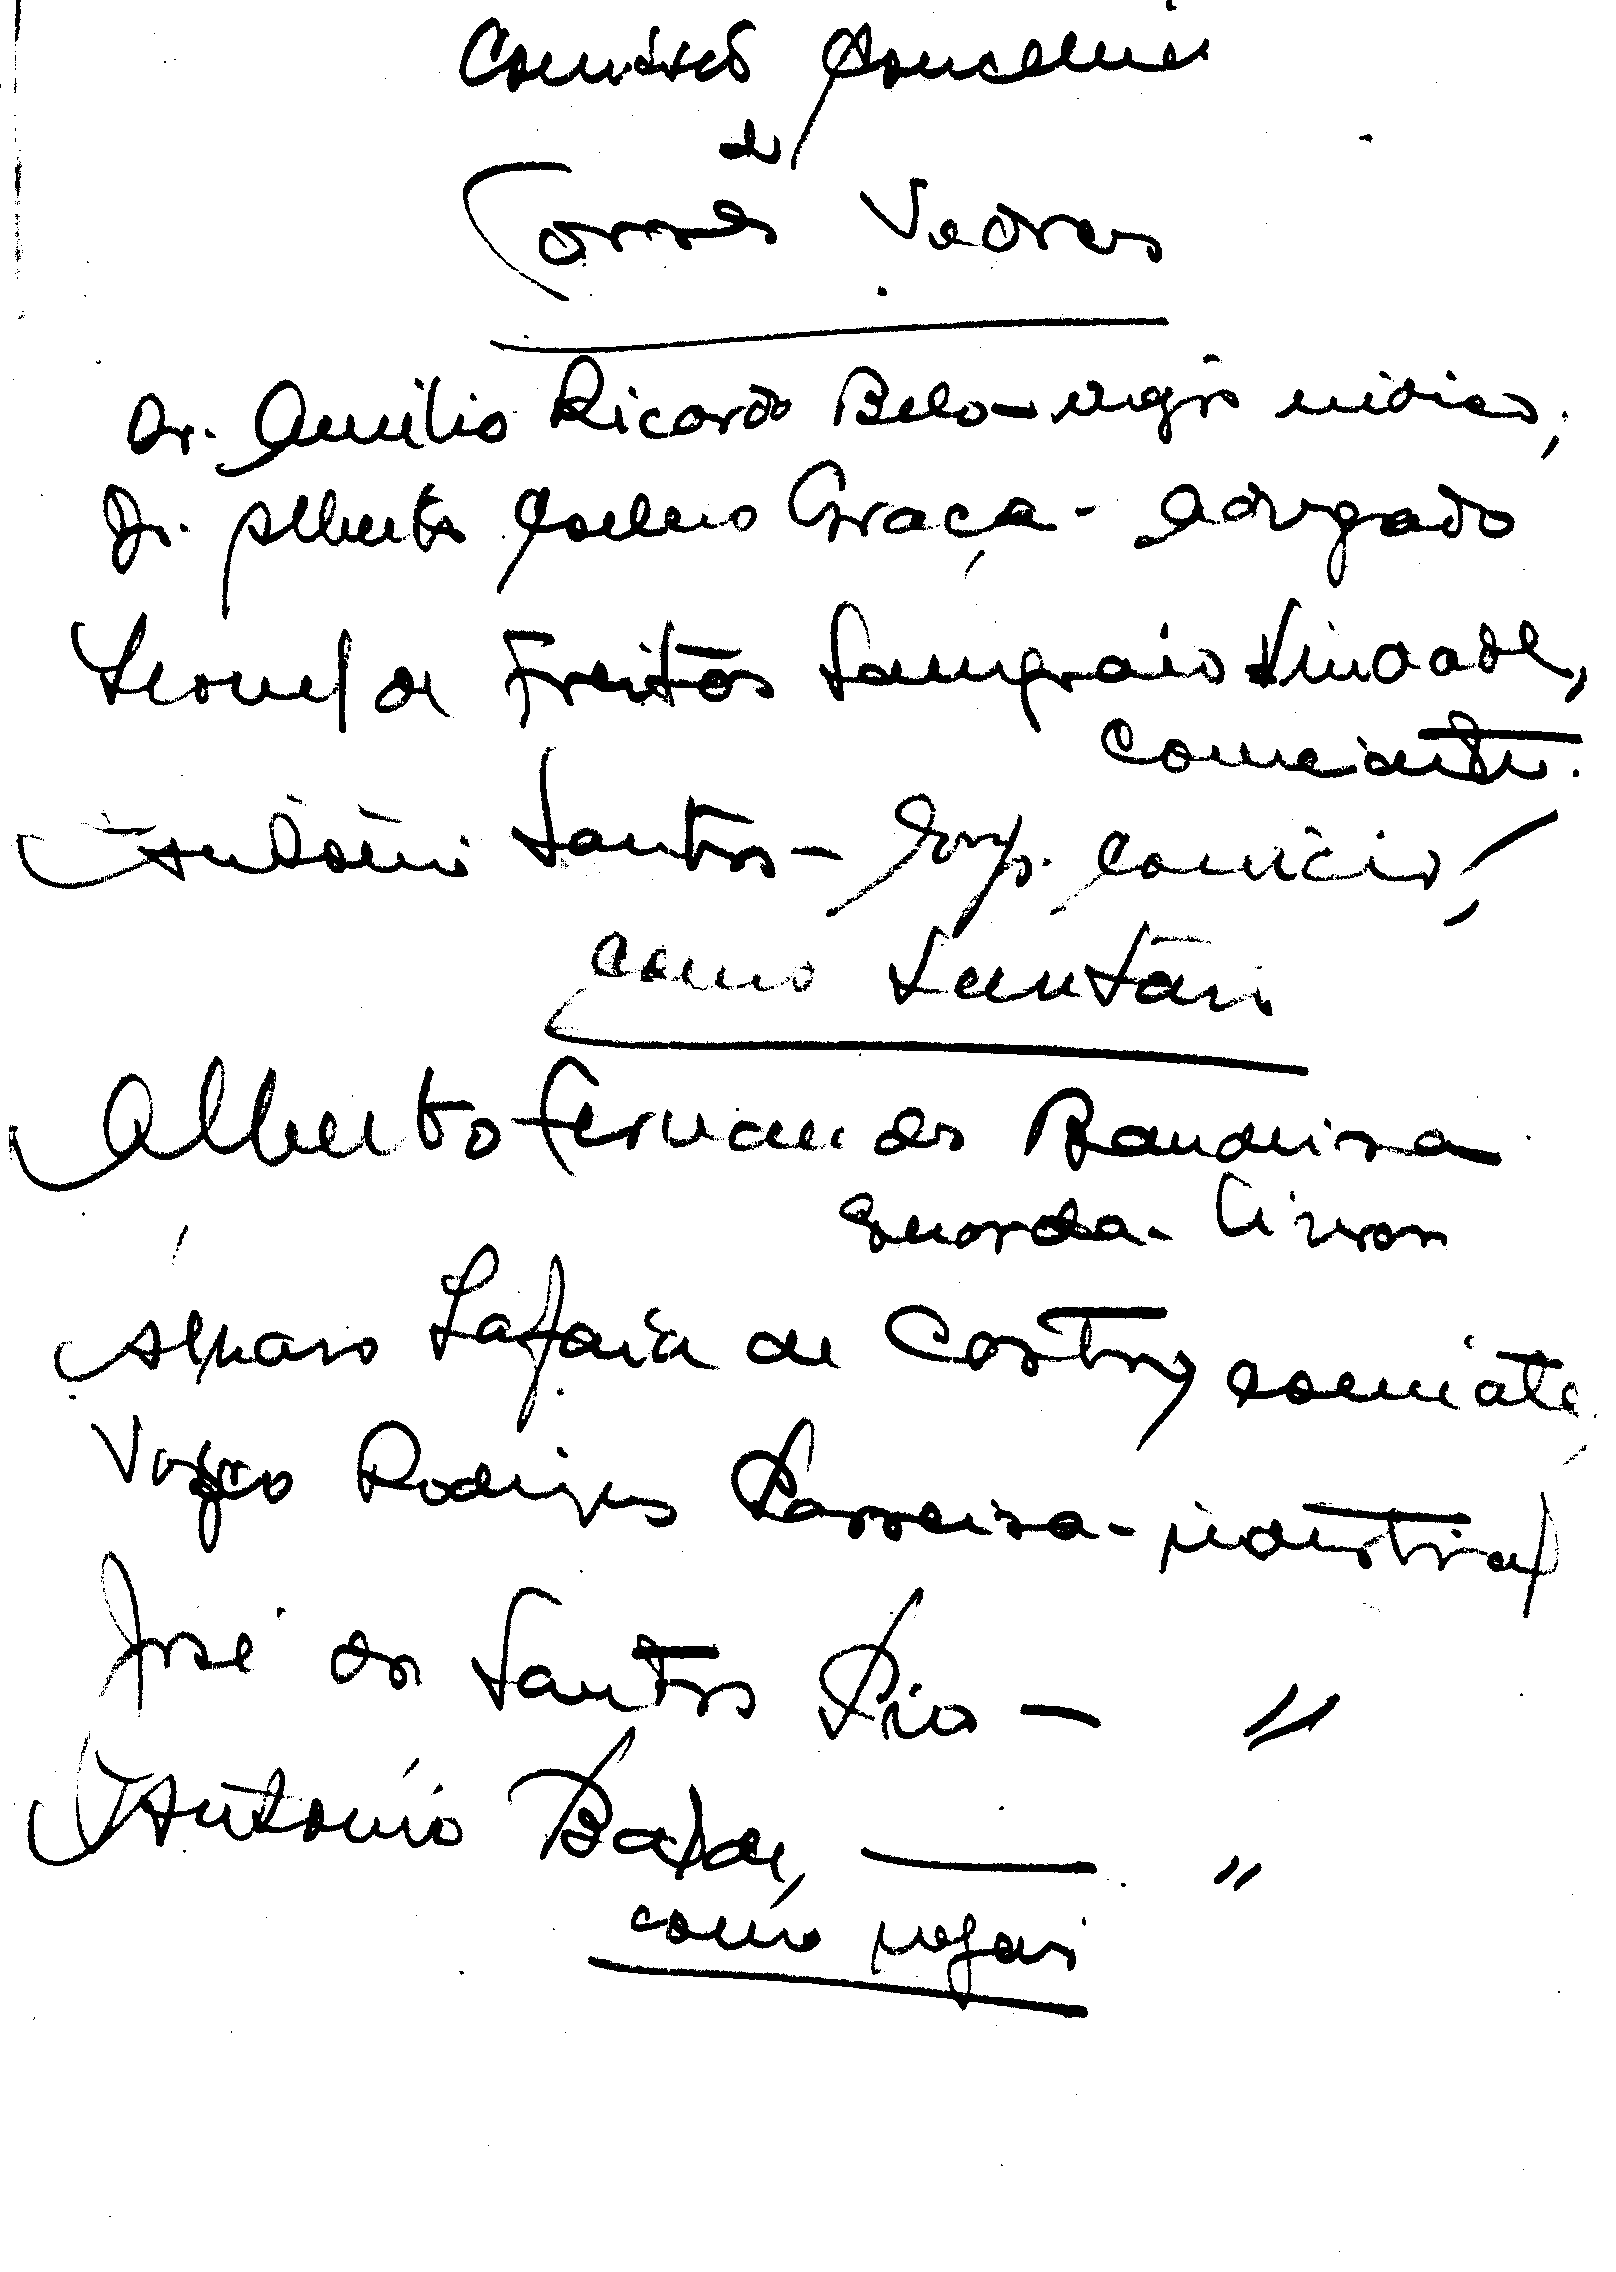 Comissão Concelhia
de
Torres Vedras
Dr. Aurélio Ricardo Belo - médico,
Dr. Alberto Coelho Graça - Advogado
Leonel de Freitas Sampaio Trindade,
Comerciante.
António Santos - Emp. Comércio,
como
Alberto Fernandes Bandeira
Guarda-livros
Alvaro Lafaia de Castro, comerciate
Vasco Rodrigues Parreira - industrial
José dos Santos Pio - "
António Batalha, — "
como vogais